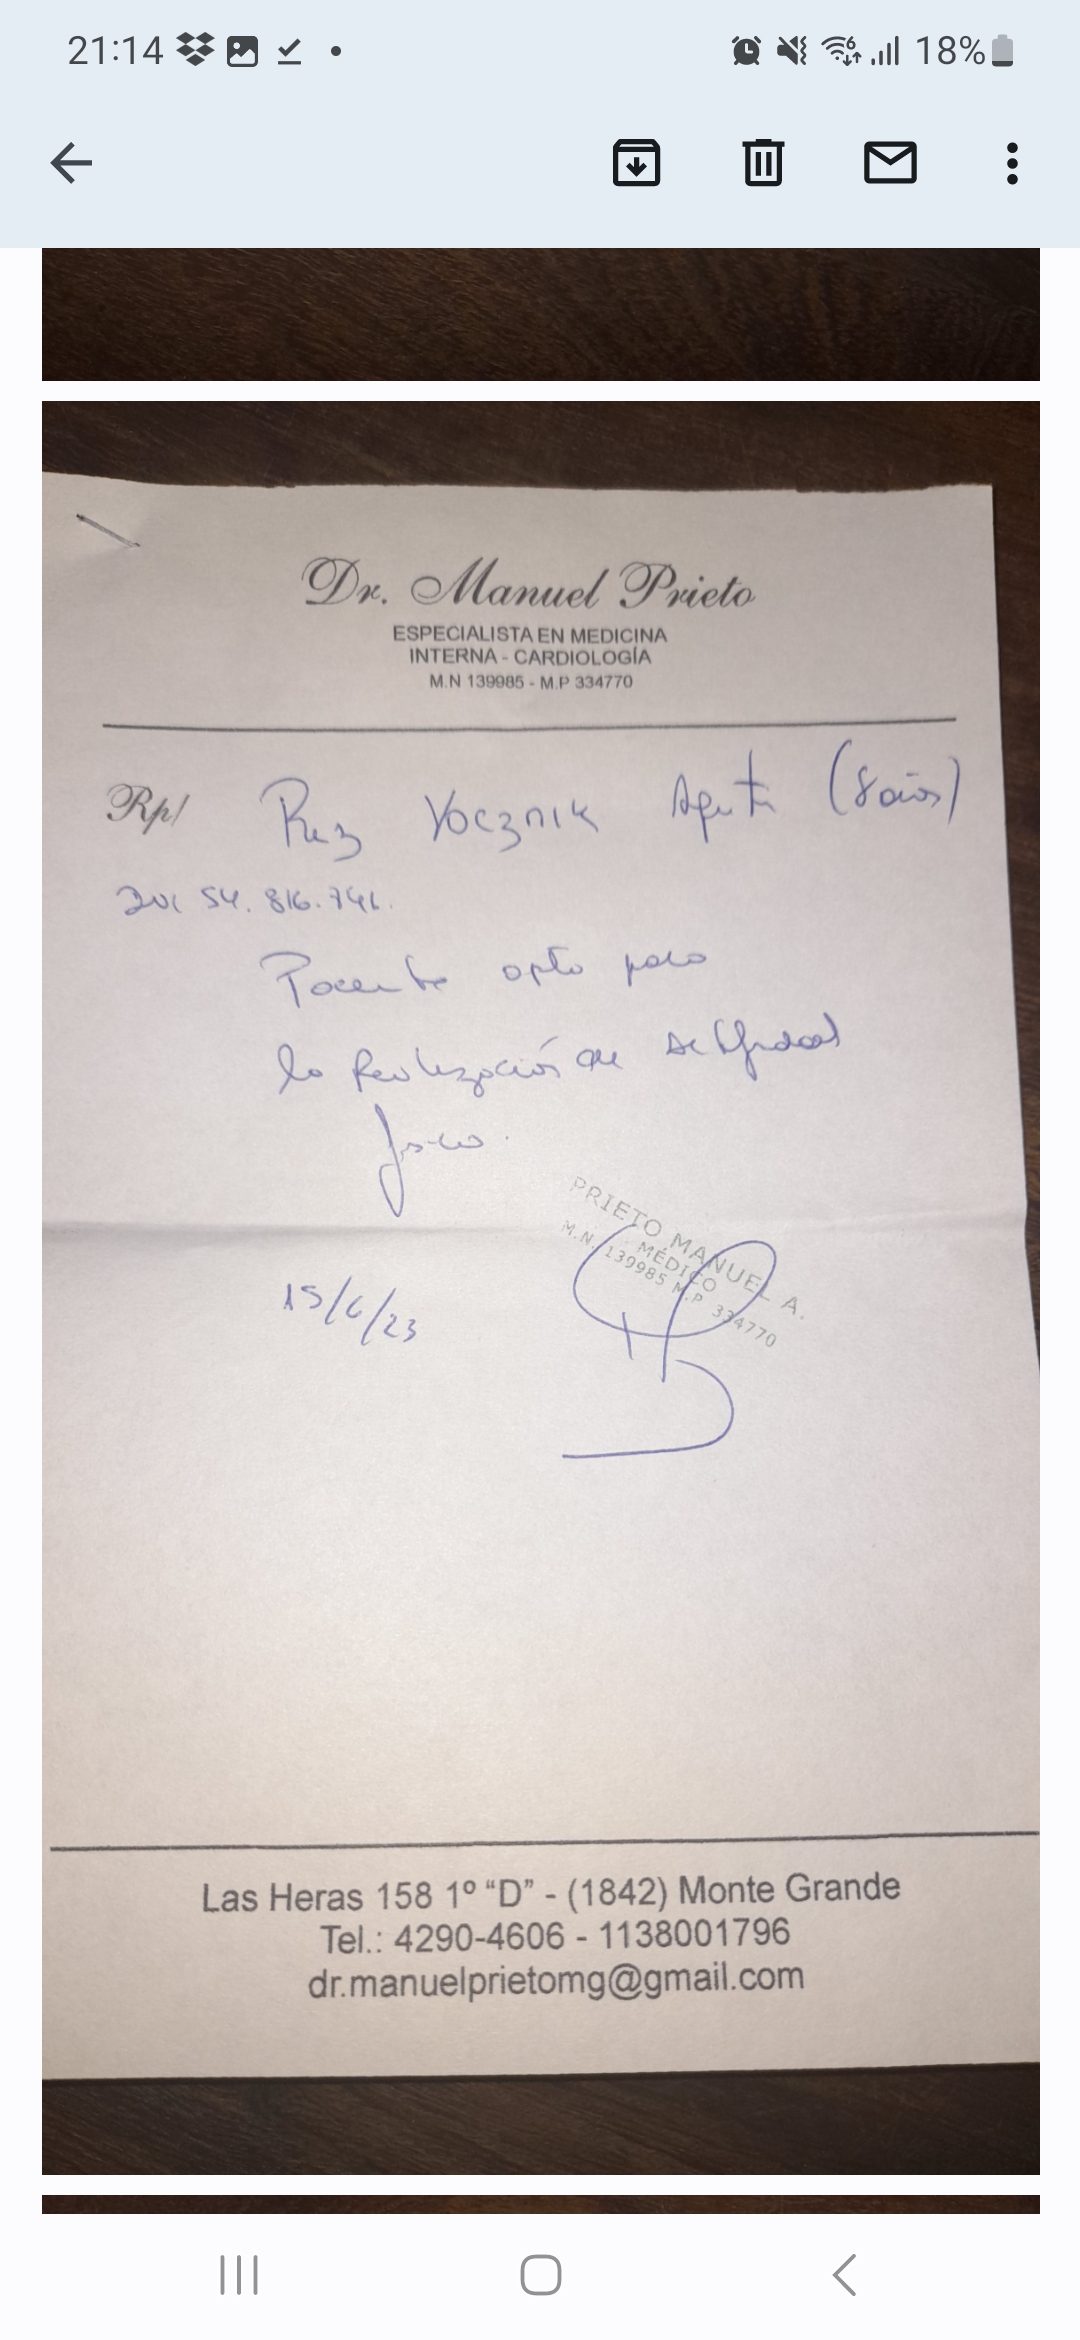 21:14 18%
Dr. Manuel Prieto
ESPECIALISTA EN MEDICINA
INTERNA - CARDIOLOGÍA
M.N 139985 - M.P 334770
Rp/ Vocznik (8 años)
54.816.741.
Paciente apto para
la Realización de actividad
física.
15/6/23
PRIETO MANUEL A.
MÉDICO
M.N. 139985 M.P 334770
Las Heras 158 1º “D” - (1842) Monte Grande
Tel.: 4290-4606 - 1138001796
dr.manuelprietomg@gmail.com